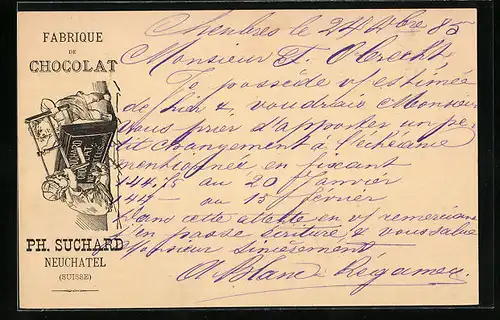 FABRIQUE
DE
CHOCOLAT
PH. SUCHARD
NEUCHATEL
(SUISSE)
Chexbres le 24 Xbre 85
Monsieur Obrecht
Je possède v/ estimée
de hier & voudrais Monsieur
vous prier d'apporter un pe-
tit changement à l'échéance
mentionnée en fixant
144.75 au 20 Janvier
144 - au 15 février
Dans cette attente en v/ remerciant
j'en passe écriture & vous salue
Monsieur sincèrement
A Blanc Régamey